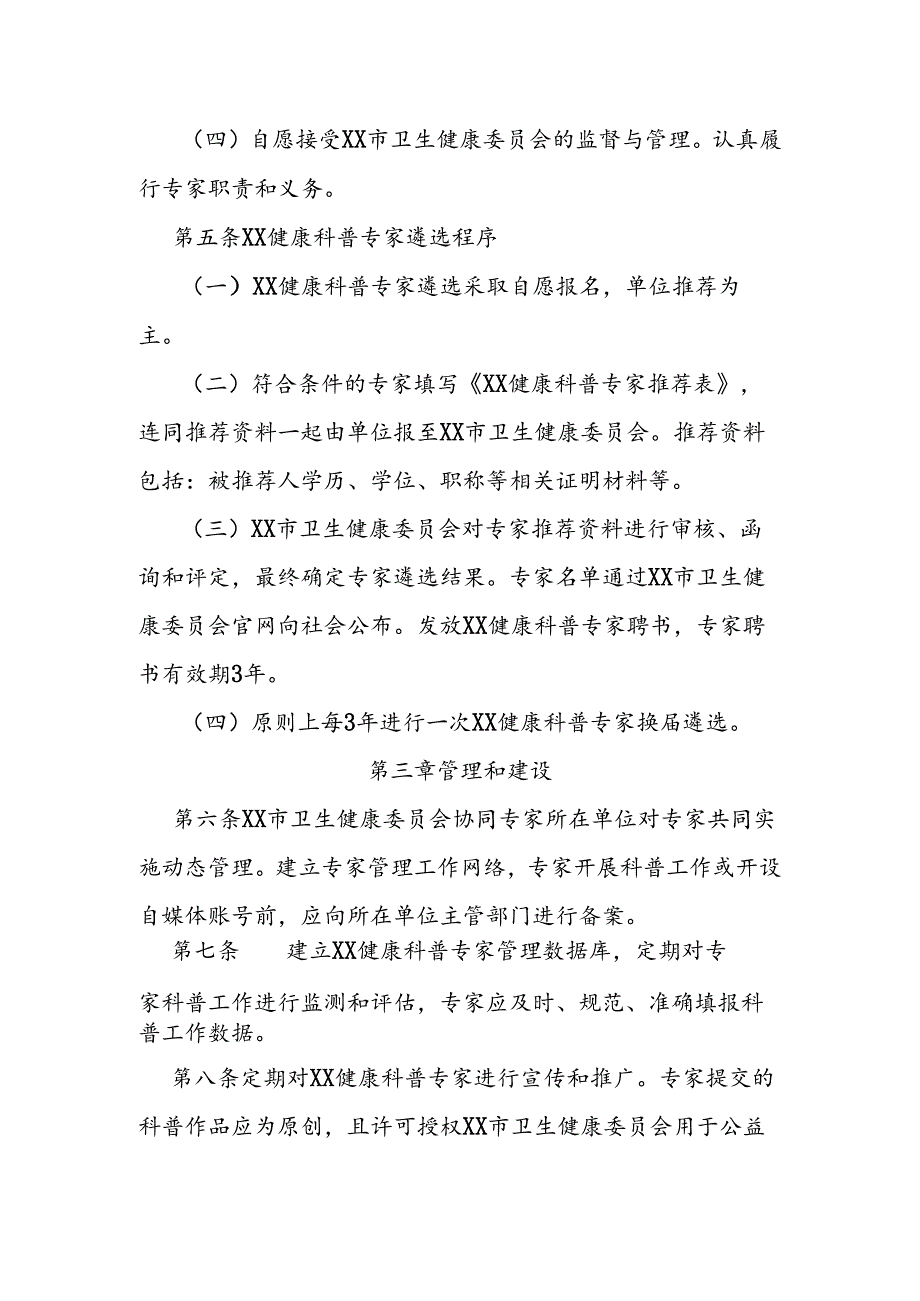 （四）自愿接受XX市卫生健康委员会的监督与管理。认真履
行专家职责和义务。
第五条XX健康科普专家遴选程序
（一）XX健康科普专家遴选采取自愿报名，单位推荐为
主。
（二）符合条件的专家填写《XX健康科普专家推荐表》，
连同推荐资料一起由单位报至XX市卫生健康委员会。推荐资料
包括：被推荐人学历、学位、职称等相关证明材料等。
（三）XX市卫生健康委员会对专家推荐资料进行审核、函
询和评定，最终确定专家遴选结果。专家名单通过XX市卫生健
康委员会官网向社会公布。发放XX健康科普专家聘书，专家聘
书有效期3年。
（四）原则上每3年进行一次XX健康科普专家换届遴选。
第三章管理和建设
第六条XX市卫生健康委员会协同专家所在单位对专家共同实
施动态管理。建立专家管理工作网络，专家开展科普工作或开设
自媒体账号前，应向所在单位主管部门进行备案。
第七条 建立XX健康科普专家管理数据库，定期对专
家科普工作进行监测和评估，专家应及时、规范、准确填报科
普工作数据。
第八条定期对XX健康科普专家进行宣传和推广。专家提交的
科普作品应为原创，且许可授权XX市卫生健康委员会用于公益